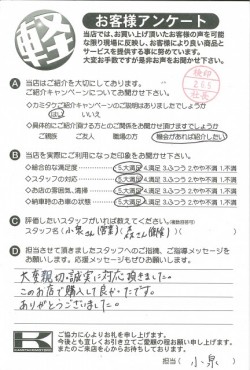 軽
お客様アンケート
当店では、お買い上げ頂いたお客様の声を可能
な限り現場に反映し、お客様により良い商品と
サービスを提供する事に努めています。
大変お手数ですが是非お声をお聞かせ下さい。
A 当店はご紹介を大切にしております。
ご紹介キャンペーンについてお聞かせ下さい
◇カミタケご紹介キャンペーンのご説明はありましたでしょうか
はい いいえ
◇具体的にご紹介頂ける方とのご関係をお聞かせ頂けますでしょうか
ご親族 ご友人 職場の方 機会があれば紹介したい
B 当店を実際にご利用になった印象をお聞かせ下さい。
◇総合的な満足度 5.大満足 4.満足 3.ふつう 2.やや不満 1.不満
◇スタッフの対応 5.大満足 4.満足 3.ふつう 2.やや不満 1.不満
◇お店の雰囲気、清掃 5.大満足 4.満足 3.ふつう 2.やや不満 1.不満
◇納車時のお車の状態 5.大満足 4.満足 3.ふつう 2.やや不満 1.不満
C 評価したいスタッフがいれば教えてください。(複数回答可)
スタッフ名(小泉さん(営業) 森さん(保険))
D 担当させて頂きましたスタッフへのご指摘、ご指導メッセージを
お願いします。応援メッセージもお待ちしております。
大変親切、誠実に対応頂きました。
このお店で購入して良かったです。
ありがとうございました。
K
ご協力に心よりお礼を申し上げます。
今後とも宜しくお引き立てご愛顧の程お願い申し上げます。
またのご来店を心からお待ちしております。
担当(小泉)